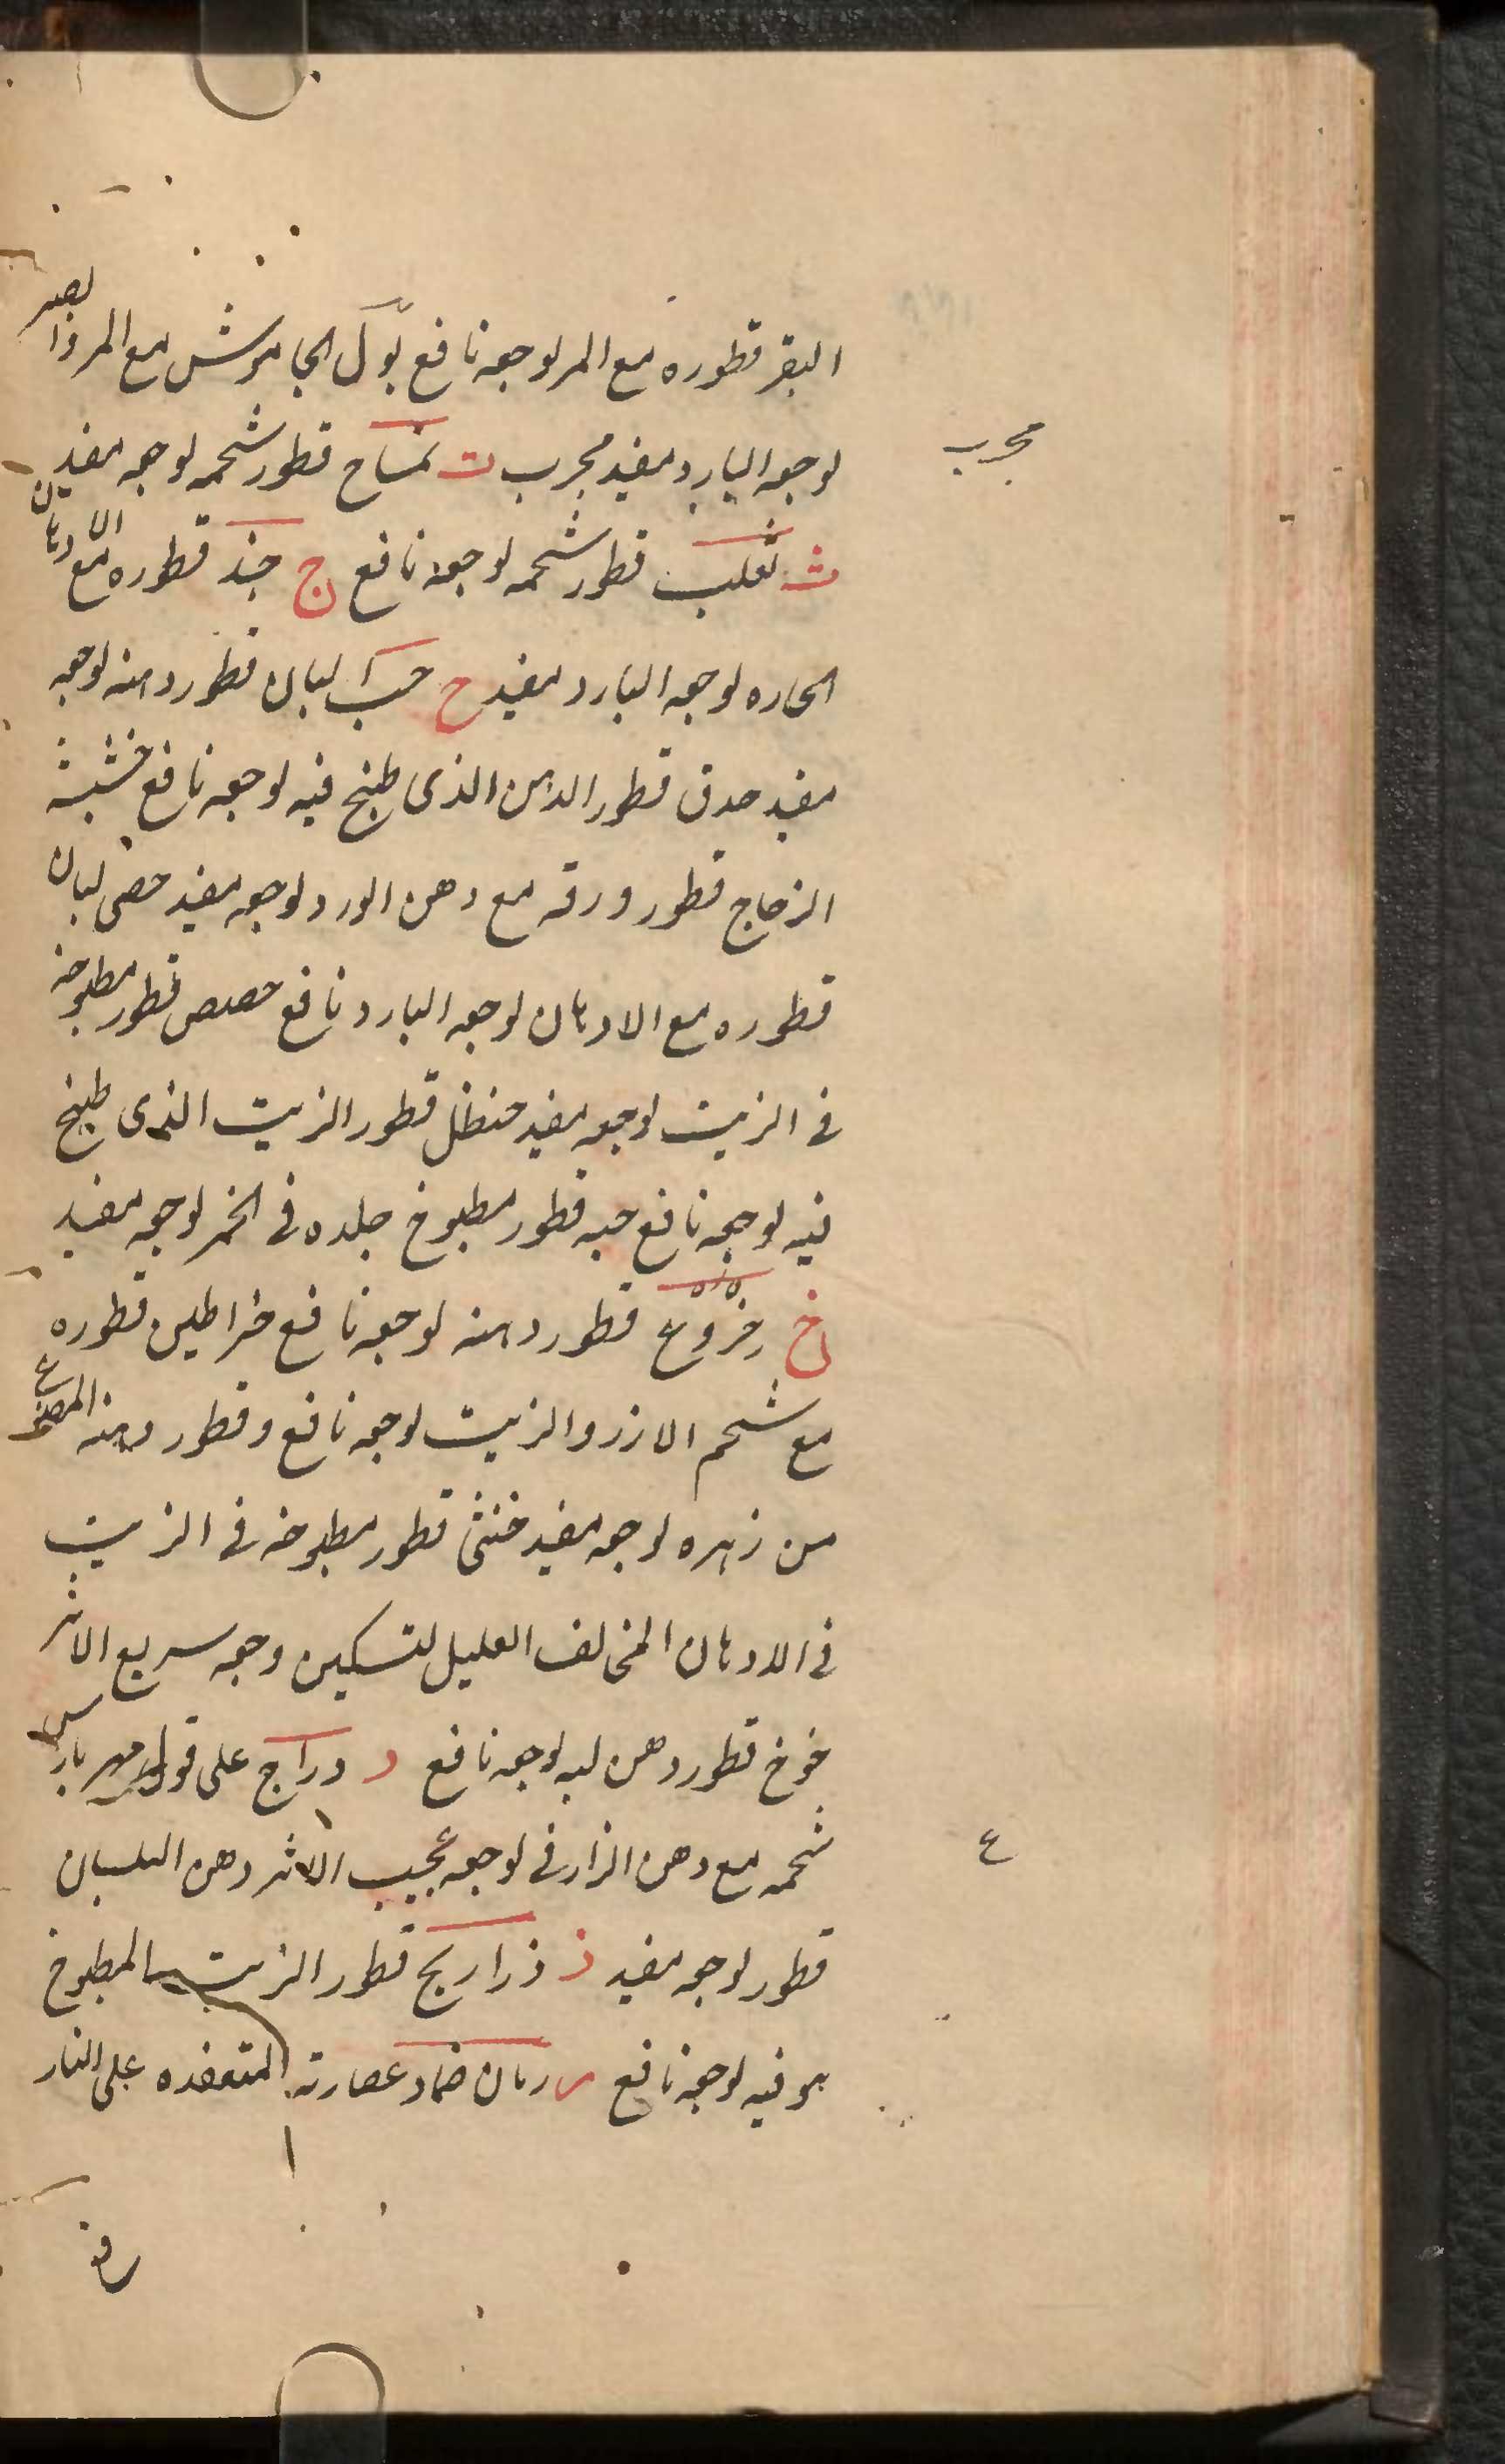 البقر قطوره مع المر لوجعه نافع بول الجاموش مع المر والصبر
لوجعه البارد مفيد مجرب ت تمساح قطور شحمه لوجعه مفيد
مجرب
ث ثعلب قطور شحمه لوجعه نافع ج جند قطوره مع الادهان
الحاره لوجعه البارد مفيد ح حب البان قطور دهنه لوجعه
مفيد حدق قطور الدهن الذى طبخ فيه لوجعه نافع خشيشة
الزجاج قطور ورقه مع دهن الورد لوجعه مفيد حصى لبان
قطوره مع الادهان لوجعه البارد نافع حضض قطور مطبوخه
فى الزيت لوجعه مفيد حنظل قطور الزيت الذى طبخ
فيه لوجعه نافع حيه قطور مطبوخ جلده فى الخمر لوجعه مفيد
خ خروع قطور دهنه لوجعه نافع خراطين قطوره
مع شحم الازر والزيت لوجعه نافع وقطور دهنه المصنوع
من زهره لوجعه مفيد خنثى قطور مطبوخه فى الزيت
فى الادهان المخالف العليل لتسكين وجعه سريع الاثر
خوخ قطور دهن لبه لوجعه نافع د دراج على قول مهرباريس
شحمه مع دهن الزارفى لوجعه عجيب الاثر دهن البلسان
ع
قطور لوجعه مفيد ذ ذراريح قطور الزيت المطبوخ
هو فيه لوجعه نافع ر رمان ضماد عصارته المتعقده على النار